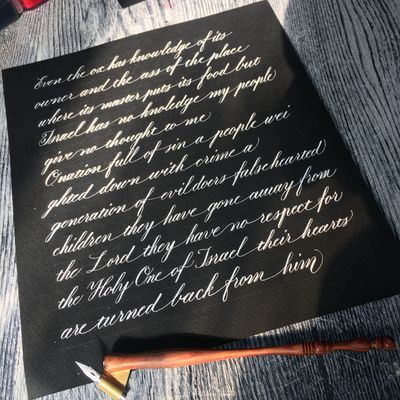 Even the ox has knowledge of its
owner and the ass of the place
where its master puts its food but
Israel has no knoledge my people
give no thought to me
O nation full of sin a people wei
ghted down with crime a
generation of evildoers falsehearted
children they have gone away from
the Lord they have no respect for
the Holy One of Israel their hearts
are turned back from him